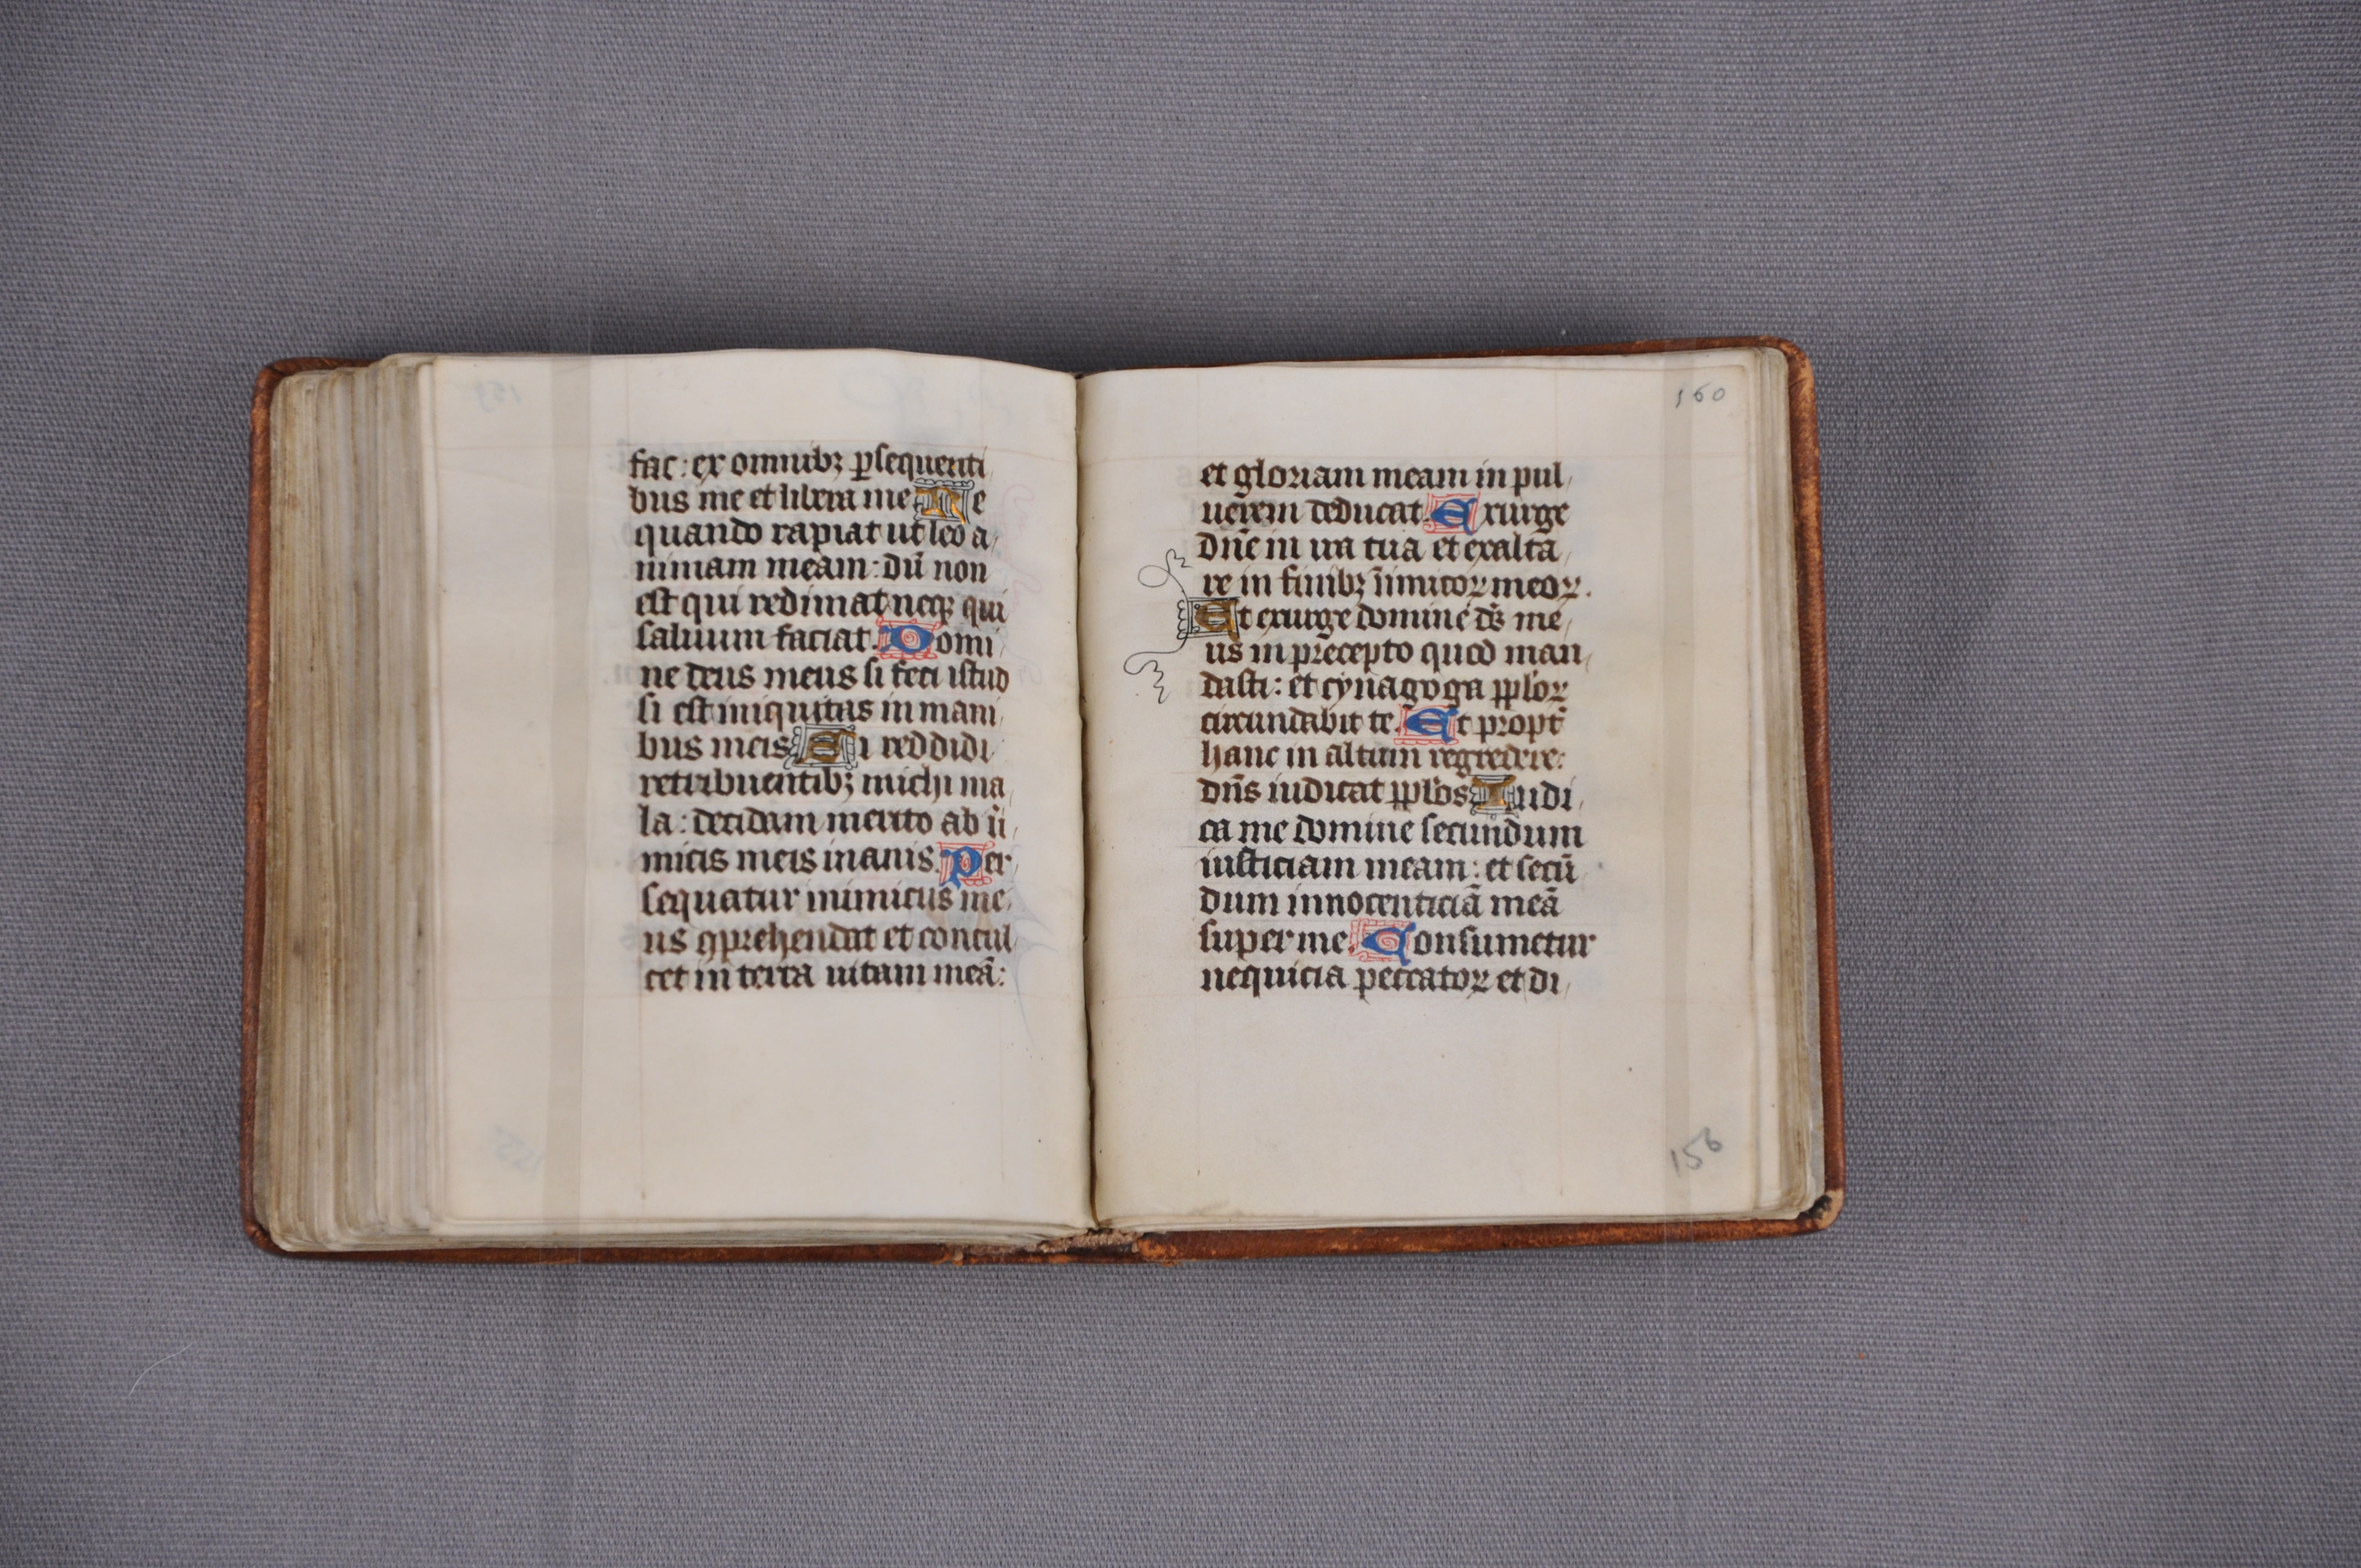 fac: ex omnibꝫ ꝑsequenti
bus me et libera me Ne
quando rapiat ut leo a
nimam meam: dū non
est qui redimat neqꝫ qui
saluum faciat. Domi
ne deus meus si feci istud
si est iniquitas in mani
bus meis Si reddidi
retribuentibꝫ michi ma
la: decidam merito ab ī
micis meis inanis. Per
sequatur inimicus me
us ꝯprehendat et concul
cet in terra uitam meā:
160
et gloriam meam in pul
uerem deducat. Exurge
dn̄e in ira tua et exalta
re in finibꝫ īimicoꝝ meoꝝ.
Et exurge domine ds̄ me
us in precepto quod man
dasti: et synagoga pp̄loꝝ
circundabit te. Et propt̄
hanc in altum regredere:
dn̄s iudicat pp̄los Iudi
ca me domine secundum
iusticiam meam: et secū
dum innocenticiā meā
super me. Consumetur
nequicia peccatoꝝ et di
156